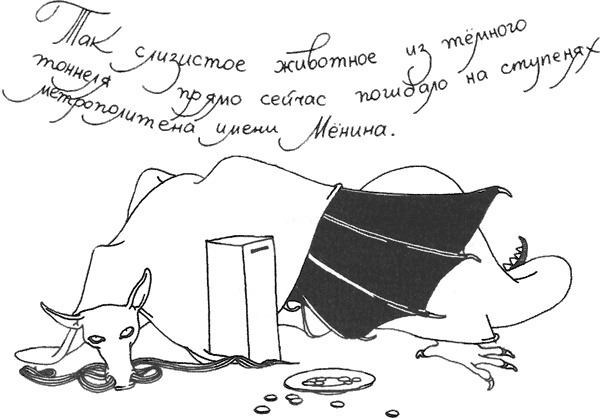 Так слизистое животное из тёмного
тоннеля прямо сейчас погибало на ступенях
метрополитена имени Мёнина.